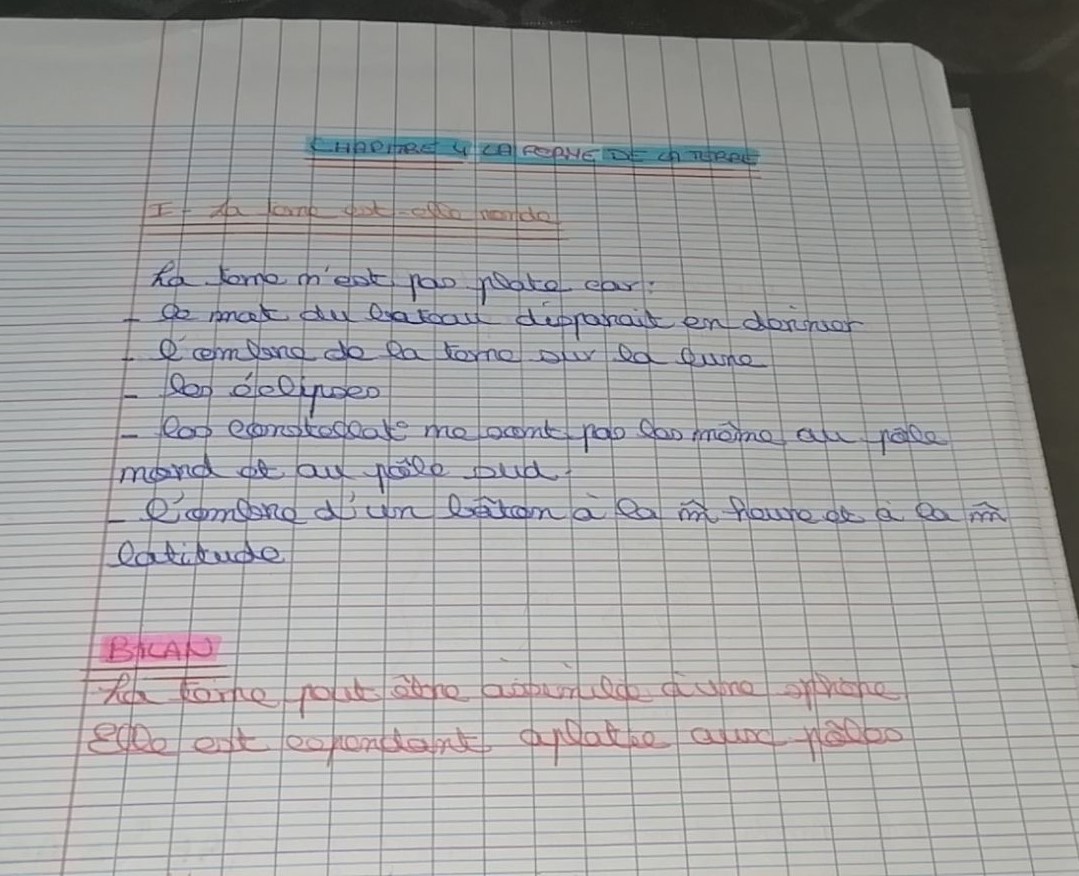 CHAPITRE 4 LA FORME DE LA TERRE
I - La terre est-elle ronde
La terre n'est pas plate car :
- le mat du bateau disparait en dernier
- l'ombre de la terre sur la lune
- les éclipses
- les constellat° ne sont pas les même au pôle
nord et au pôle sud.
- l'ombre d'un bâton à la m̂ heure et à la m̂
latitude
BILAN
La terre peut être assimilée à une sphère
Elle est cependant aplatie aux pôles